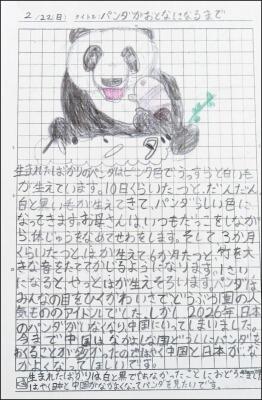 2/22(日) タイトル:パンダがおとなになるまで
生まれたばかりのパンダはピンク色でうっすらと白い毛
が生えています。10日くらいたつと、だんだん
白と黒い毛が生えてきて、パンダらしい色に
なってきます。お母さんはいつもだっこをしなが
ら、体じゅうをなめてせわをします。そして3か月
くらいたつとはが生えて6か月たつと竹を大
きな音をたててかじるようになります。1さい
になると、やっとはが生えそろいます。パンダは
みんなの目をひくかわいさでどうぶつ園の人
気もののアイドルでした。しかし2026年、日本
のパンダがいなくなり、中国にいってしまいました。
今まで中国はなかよしな国に
おくることが多かったのではやく中国と日本がな
かよくなってほしいです。
生まれたばかりは白と黒でなかったことにおどろきました
はやく日中となかよくなってパンダを見たいです。